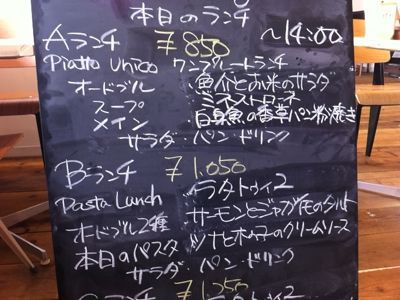 本日のランチ
Aランチ ¥850 〜14:00
Piatto Unico ワンプレートランチ
オードブル 魚介とお米のサラダ
スープ ミネストローネ
メイン 白身魚の香草パン粉焼き
サラダ・パン・ドリンク
Bランチ ¥1,050
Pasta Lunch ラタトゥイユ
オードブル2種 サーモンとじゃが芋のタルト
本日のパスタ ツナとオクラのクリームソース
サラダ・パン・ドリンク
Cランチ ¥1,250